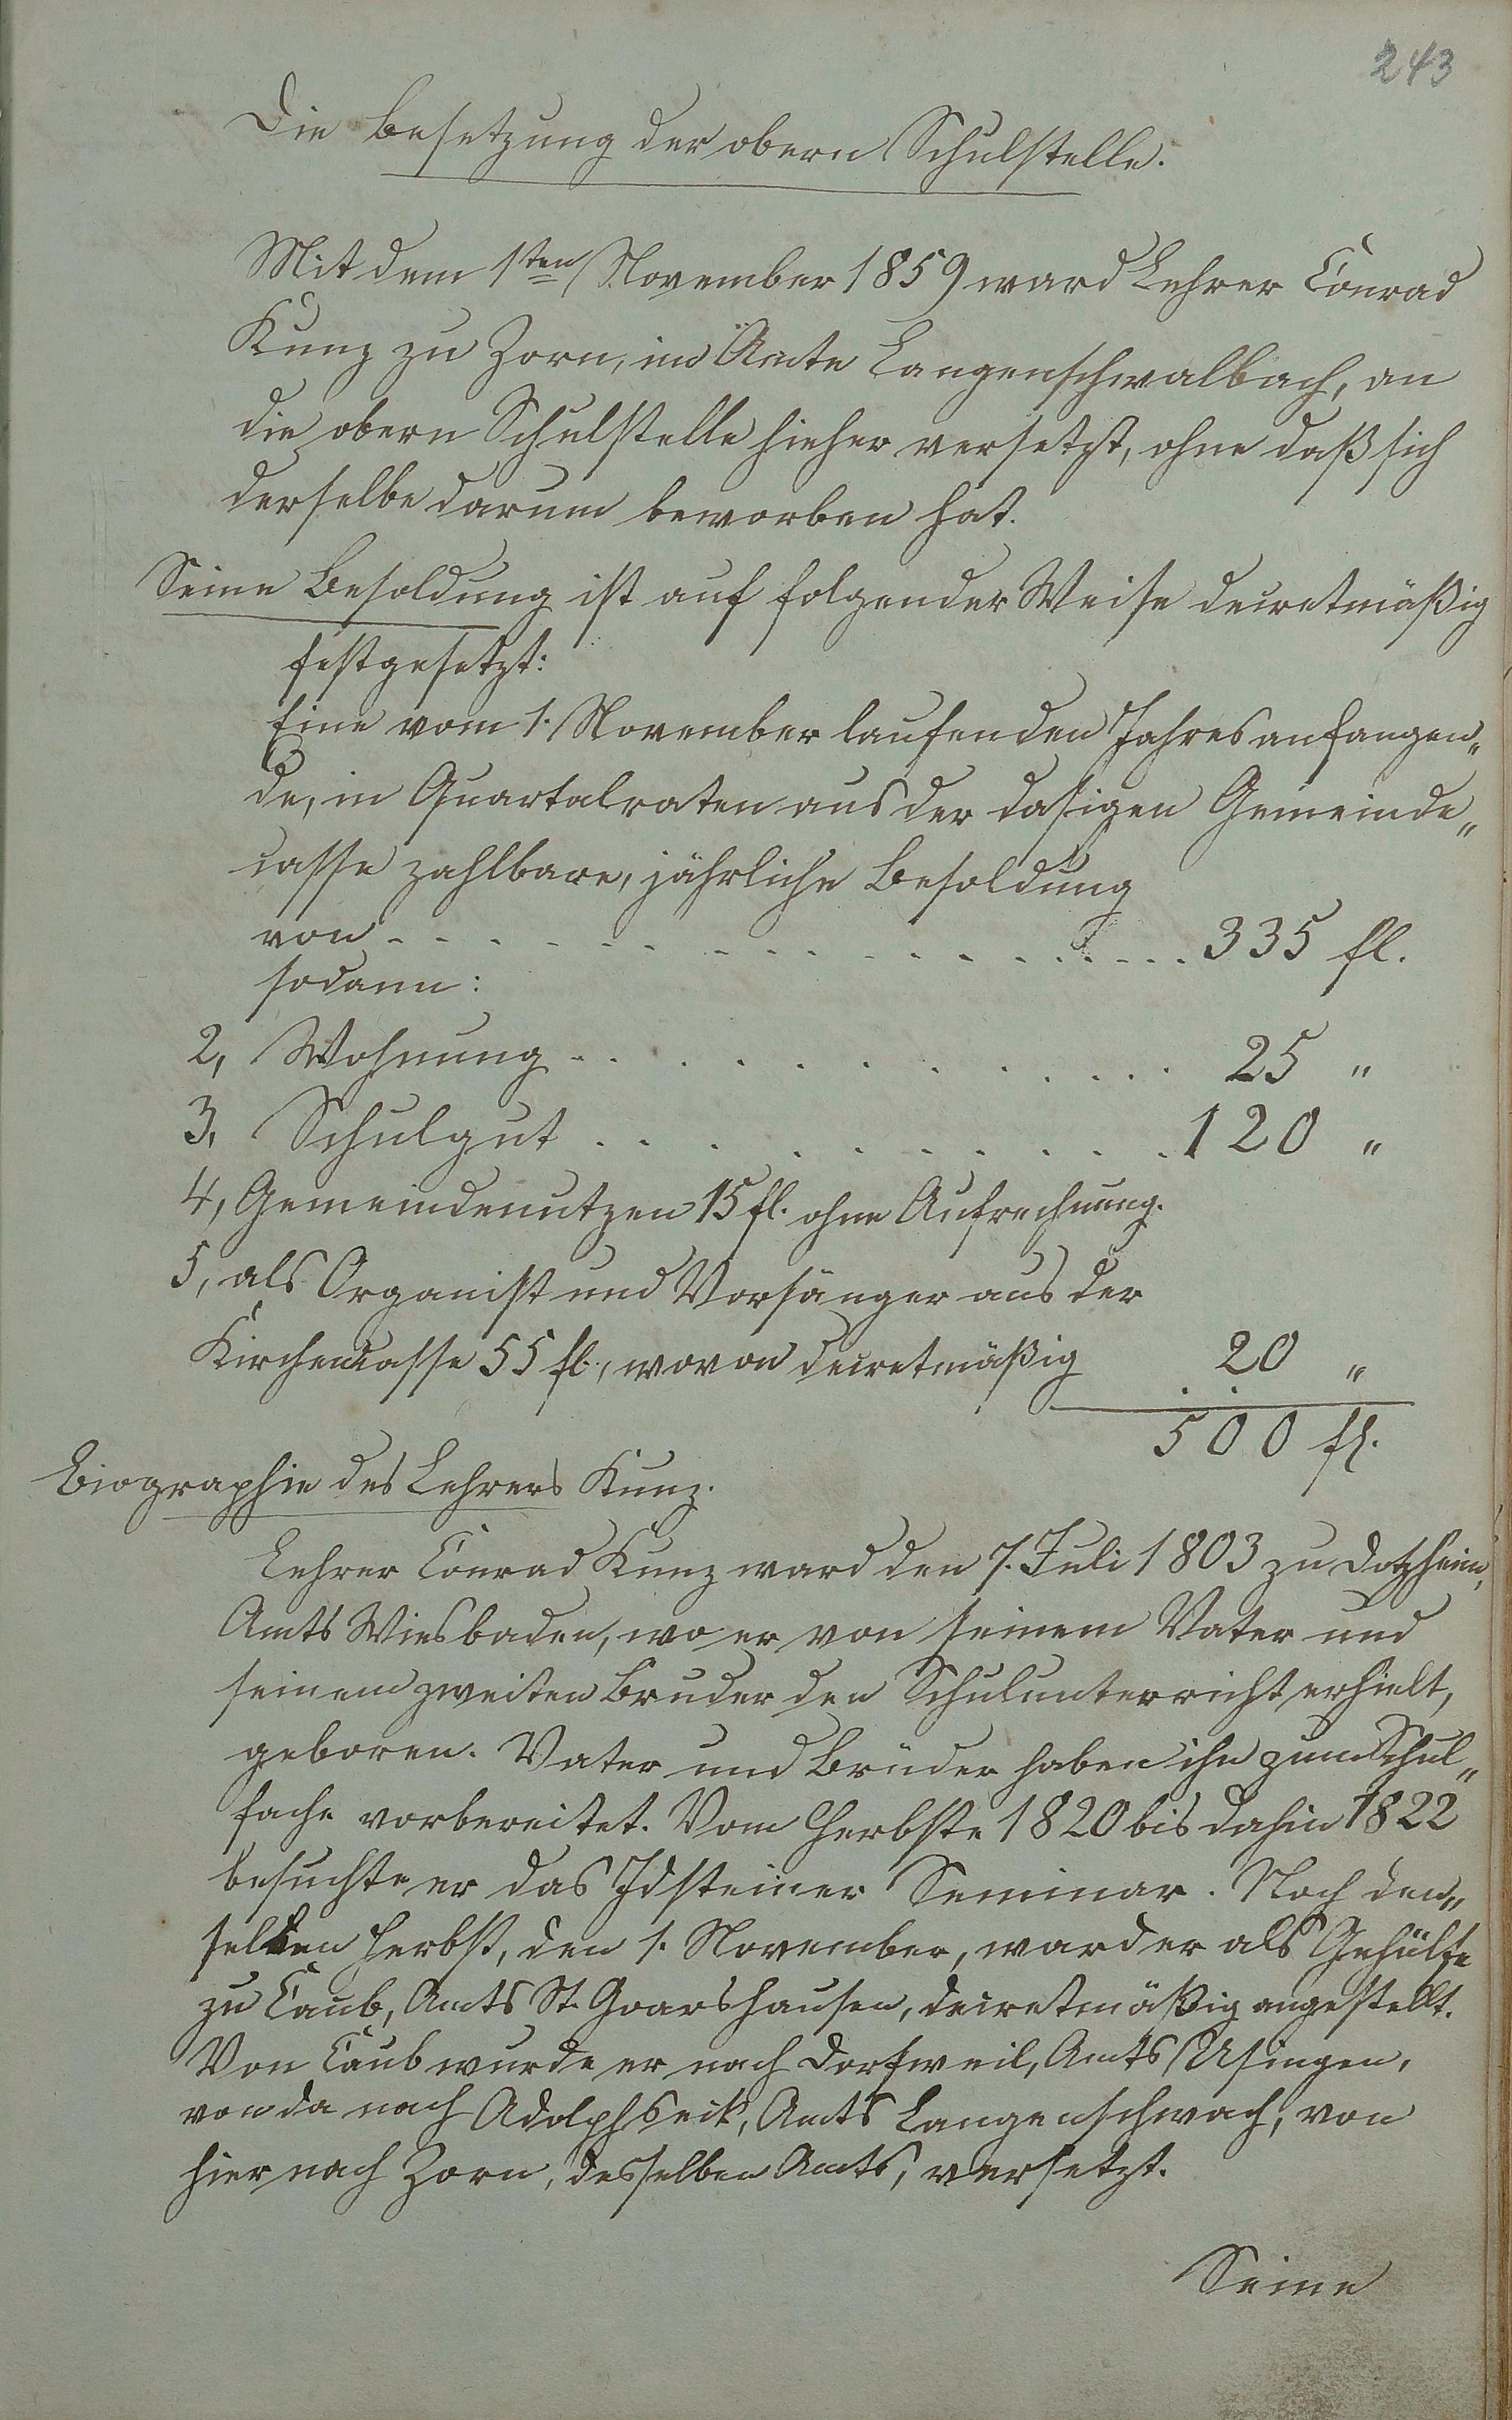 243
Die Besetzung der obern Schulstelle.
Mit dem 1ten November 1859 ward Lehrer Conrad
Kunz zu Zorn, im Amte Langenschwalbach, an
die obern Schulstelle hieher versetzt, ohne daß sich
derselbe darum beworben hat.
Seine Besoldung ist auf folgender Weise decretmäßig
festgesetzt:
Eine vom 1. November laufenden Jahres anfangen„
de, in Quartalraten aus der dasigen Gemeinde„
casse zahlbare, jährliche Besoldung
von - - - - - - - - - - - - - - - 335 fl.
sodann:
2, Wohnung - . . . . . . . . . . 25 „
3, Schulgut . . . . . . . . . . 120 „
4, Gemeindenutzen 15 fl. ohne Aufrechnung.
5, als Organist und Vorsänger aus der
Kirchencasse 55 fl., wovon decretmäßig 20 „
500 fl.
Biographie des Lehrers Kunz.
Lehrer Conrad Kunz ward den 7. Juli 1803 zu Dotzheim,
Amts Wiesbaden, wo er von seinem Vater und
seinem zweiten Bruder den Schulunterricht erhielt,
geboren. Vater und Brüder haben ihn zum Schul„
fache vorbereitet. Vom Herbste 1820 bis dahin 1822
besuchte er das Idsteiner Seminar. Noch den„
selben Herbst, den 1. November, ward er als Gehülfe
zu Caub, Amts St. Goarshausen, decretmäßig angestellt.
Von Caub wurde er nach Dorfweil, Amts Usingen,
von da nach Adolphseck, Amts Langenschwach, von
hier nach Zorn, desselben Amts, versetzt.
Seine